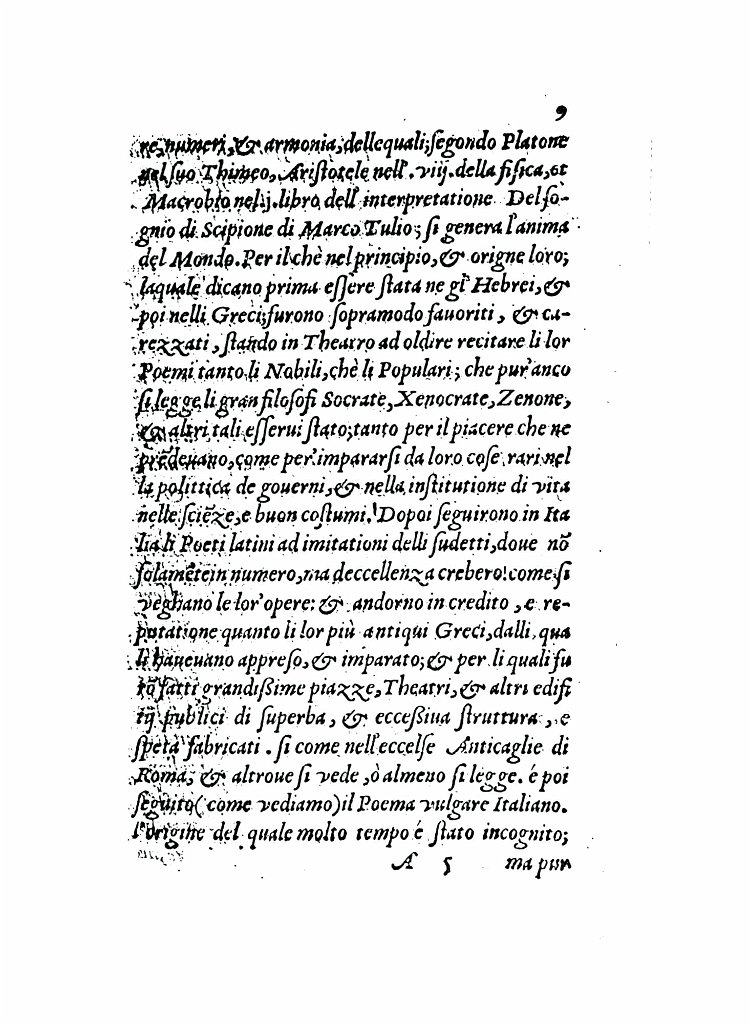 9
re, numeri, & armonia, dellequali, segondo Platone
nel suo Thimeo, Aristotele nell'. viij. della fisica, et
Macrobio nel ij. libro dell' interpretatione Del so-
gnio di Scipione di Marco Tulio; si genera l'anima
del Mondo. Per il chè nel principio, & origne loro;
laquale dicano prima essere stata ne gl' Hebrei, &
poi nelli Greci; furono sopramodo favoriti, & ca-
rezzati, stando in Theatro ad oldire recitare li lor
Poemi tanto li Nobili, chè li Populari; che pur'anco
si legge li gran filosofi Socrate, Xenocrate, Zenone,
& altri tali esserui stato; tanto per il piacere che ne
prẽdeuano, come per'impararsi da loro cose rari nel
la polittica de gouerni, & nella institutione di vita
nelle sciẽze, e buon costumi. Dopoi seguirono in Ita
lia li Poeti latini ad imitationi delli sudetti, doue nõ
solamẽte in numero, ma deccellenza crebero! come si
vegliano le lor'opere: & andorno in credito, e re-
putatione quanto li lor più antiqui Greci, dalli qua
li haueuano appreso, & imparato; & per li quali fu
rõ fatti grandissime piazze, Theatri, & altri edifi
tij publici di superba, & eccessiua struttura, e
speta fabricati. si come nell'eccelse Anticaglie di
Roma; & altroue si vede, ò almeno si legge. é poi
seguito (come vediamo) il Poema vulgare Italiano.
l'origine del quale molto tempo é stato incognito;
A 5 ma pur